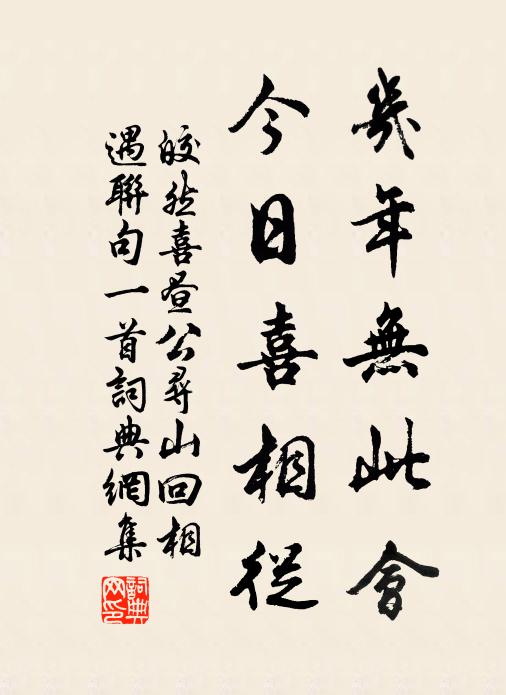 幾年無此會
今日喜相從
皎然喜晝公尋山回相
遇聯句一首詞典網集
詞典網印